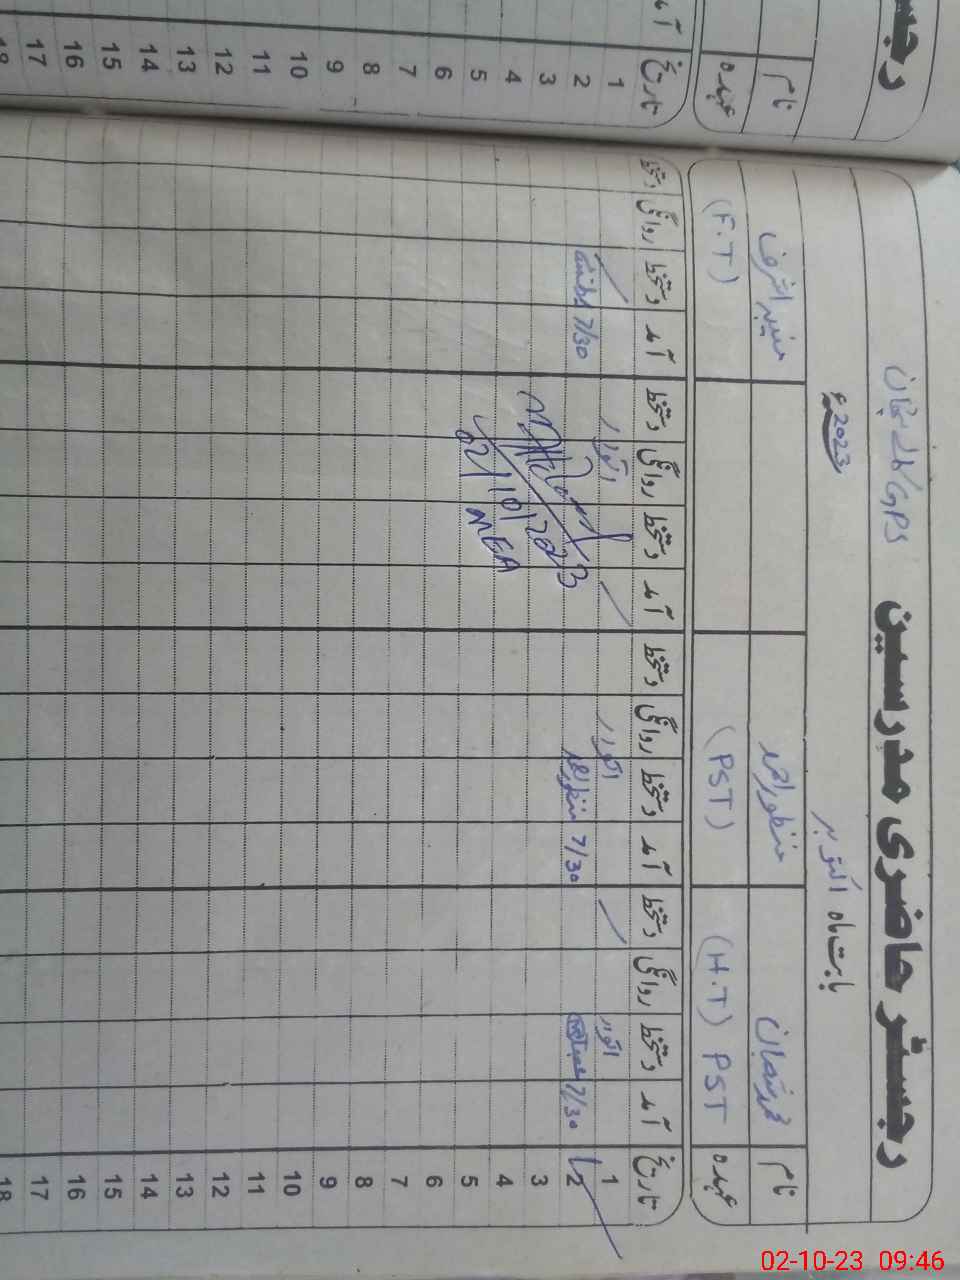 رجسٹر حاضری مدرسین GPS
بابت ماہ اکتوبر 2023ء
نام محمد عثمان منظور احمد
عہدہ (H.T) PST (PST) (F.T)
تاریخ آمد دستخط روانگی دستخط آمد دستخط روانگی دستخط آمد دستخط روانگی دستخط آمد دستخط روانگی دستخط
1 اتوار اتوار اتوار
2 7/30 7/30 منظور احمد 7/30
3
4
5
6
7
8
9
10
11
12
13
14
15
16
17
18
02/10/2023
MEA
نام
عہدہ
تاریخ
1
2
3
4
5
6
7
8
9
10
11
12
13
14
15
16
17
18
02-10-23 09:46